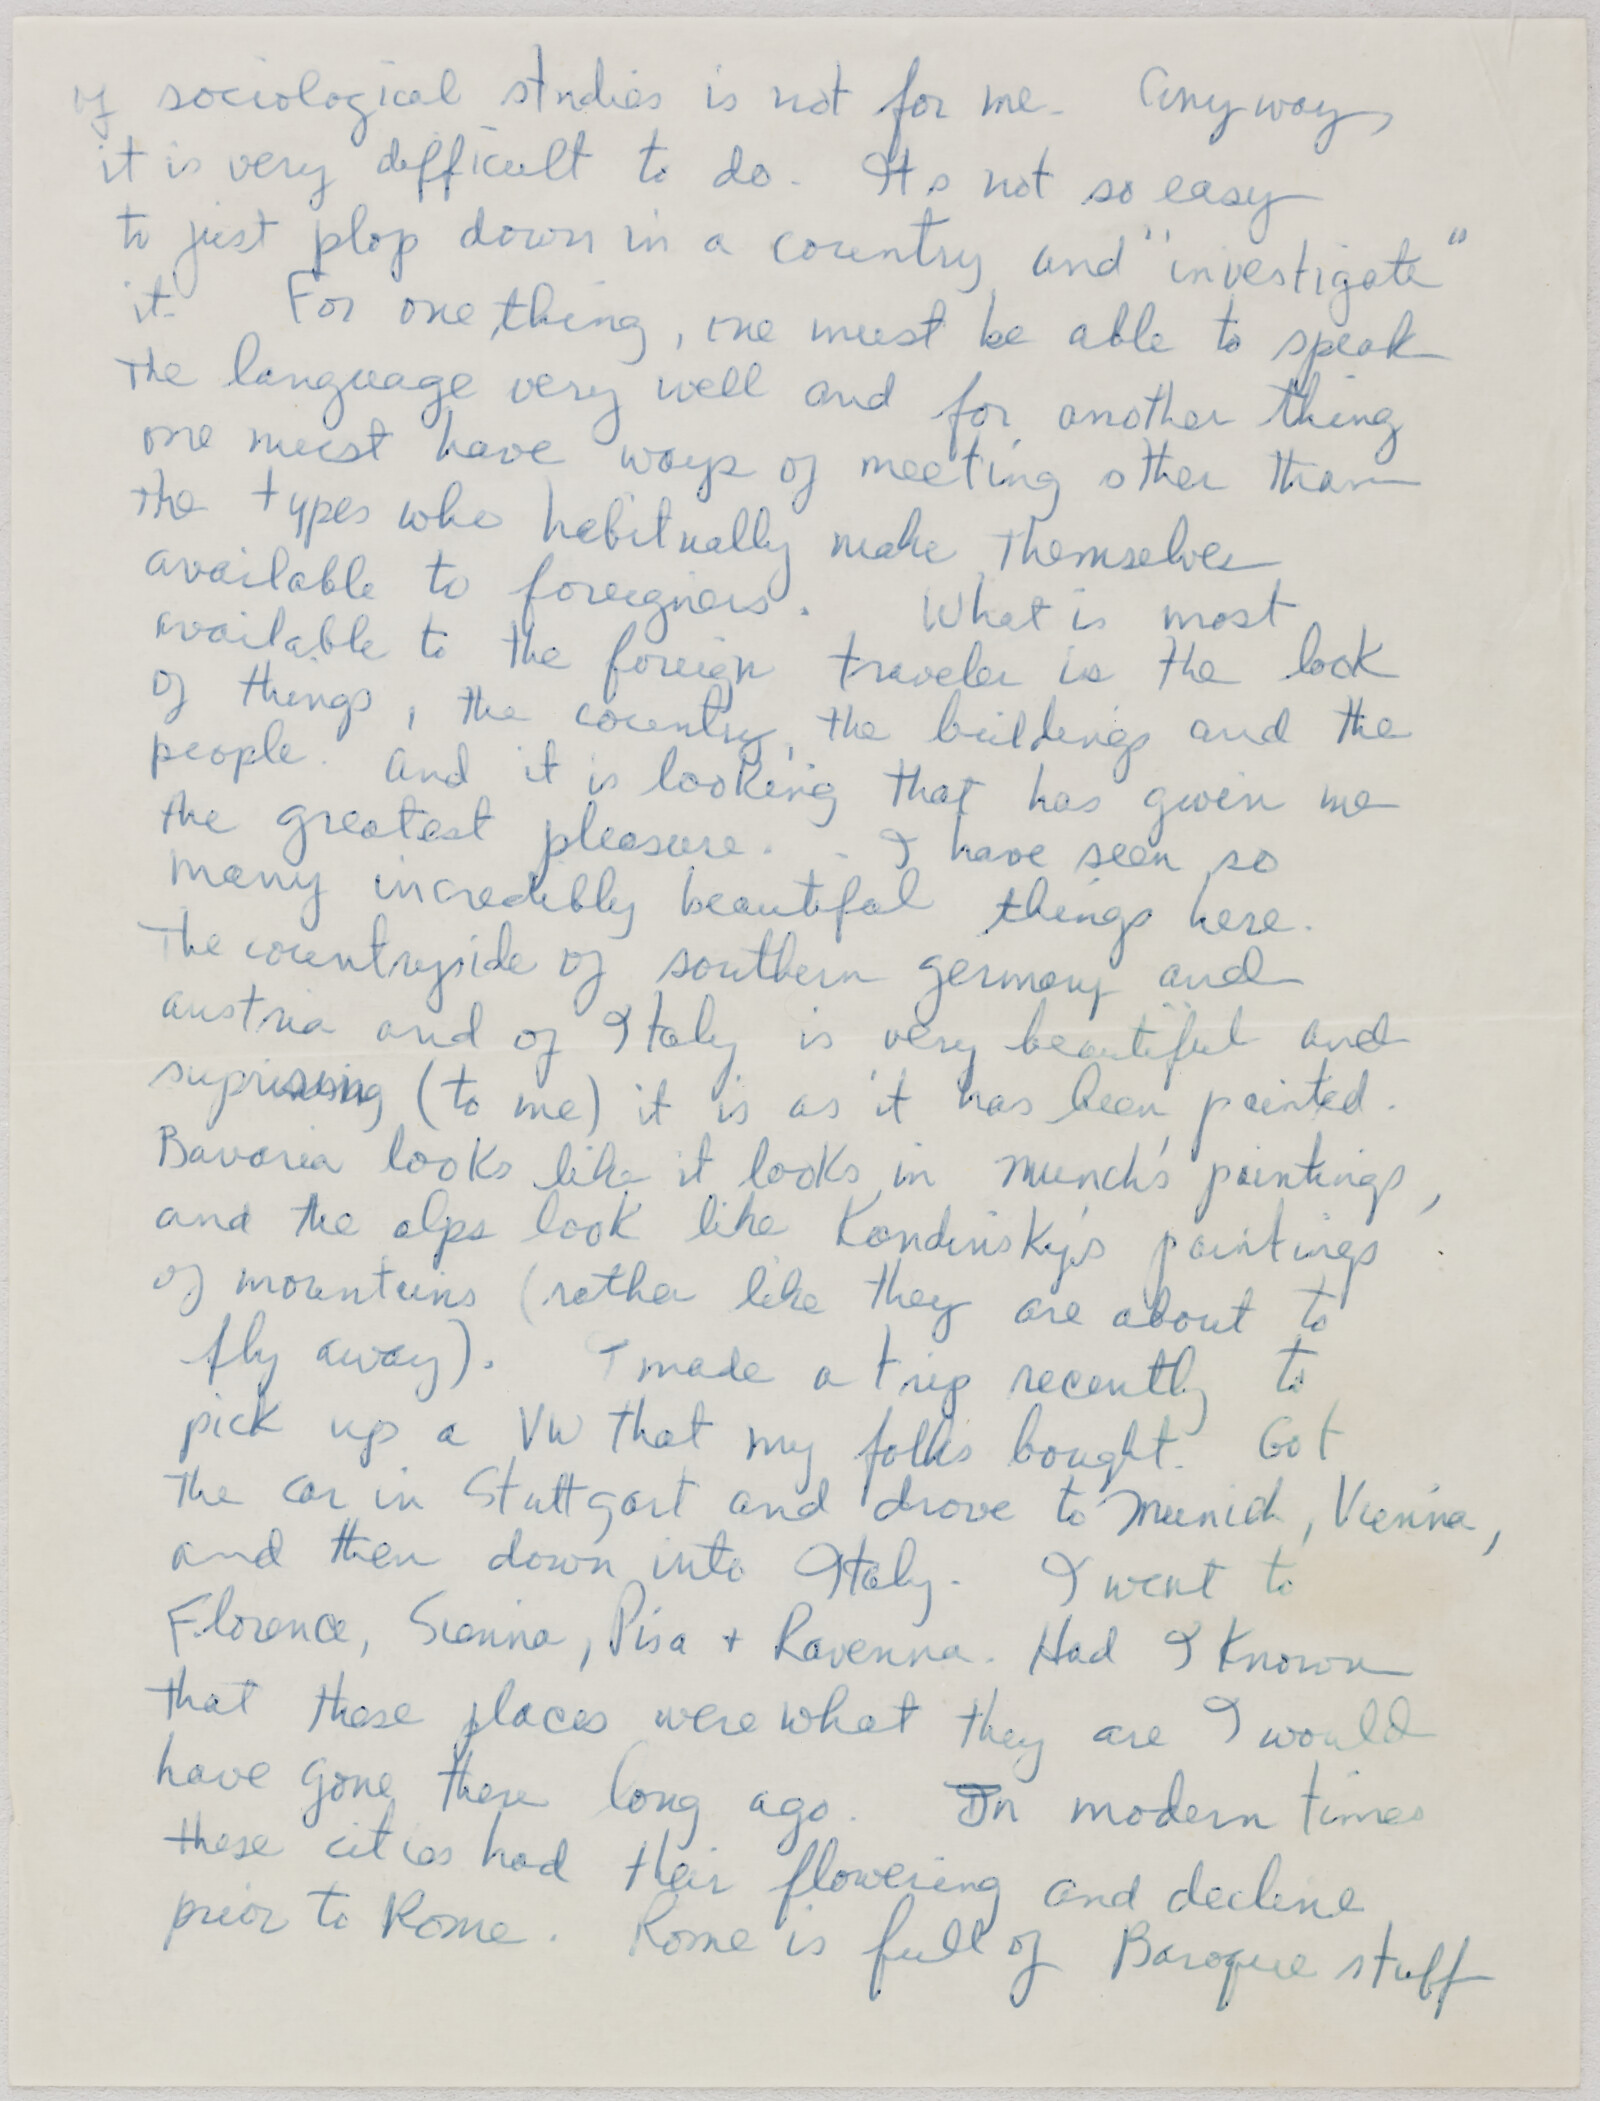 of sociological studies is not for me. Anyway,
it is very difficult to do. Its not so easy
to just plop down in a country and "investigate"
it. For one thing, one must be able to speak
the language very well and for another thing
one must have ways of meeting other than
the types who habitually make themselves
available to foreigners. What is most
available to the foreign traveler is the look
of things, the country, the buildings and the
people. And it is looking that has given me
the greatest pleasure. I have seen so
many incredibly beautiful things here.
The countryside of southern Germany and
Austria and of Italy is very beautiful and
suprising (to me) it is as it has been painted.
Bavaria looks like it looks in Munch's paintings,
and the alps look like Kandinsky's paintings
of mountains (rather like they are about to
fly away). I made a trip recently to
pick up a VW that my folks bought. Got
the car in Stuttgart and drove to Munich, Vienna,
and then down into Italy. I went to
Florence, Sienna, Pisa + Ravenna. Had I known
that these places were what they are I would
have gone there long ago. In modern times
these cities had their flowering and decline
prior to Rome. Rome is full of Baroque stuff